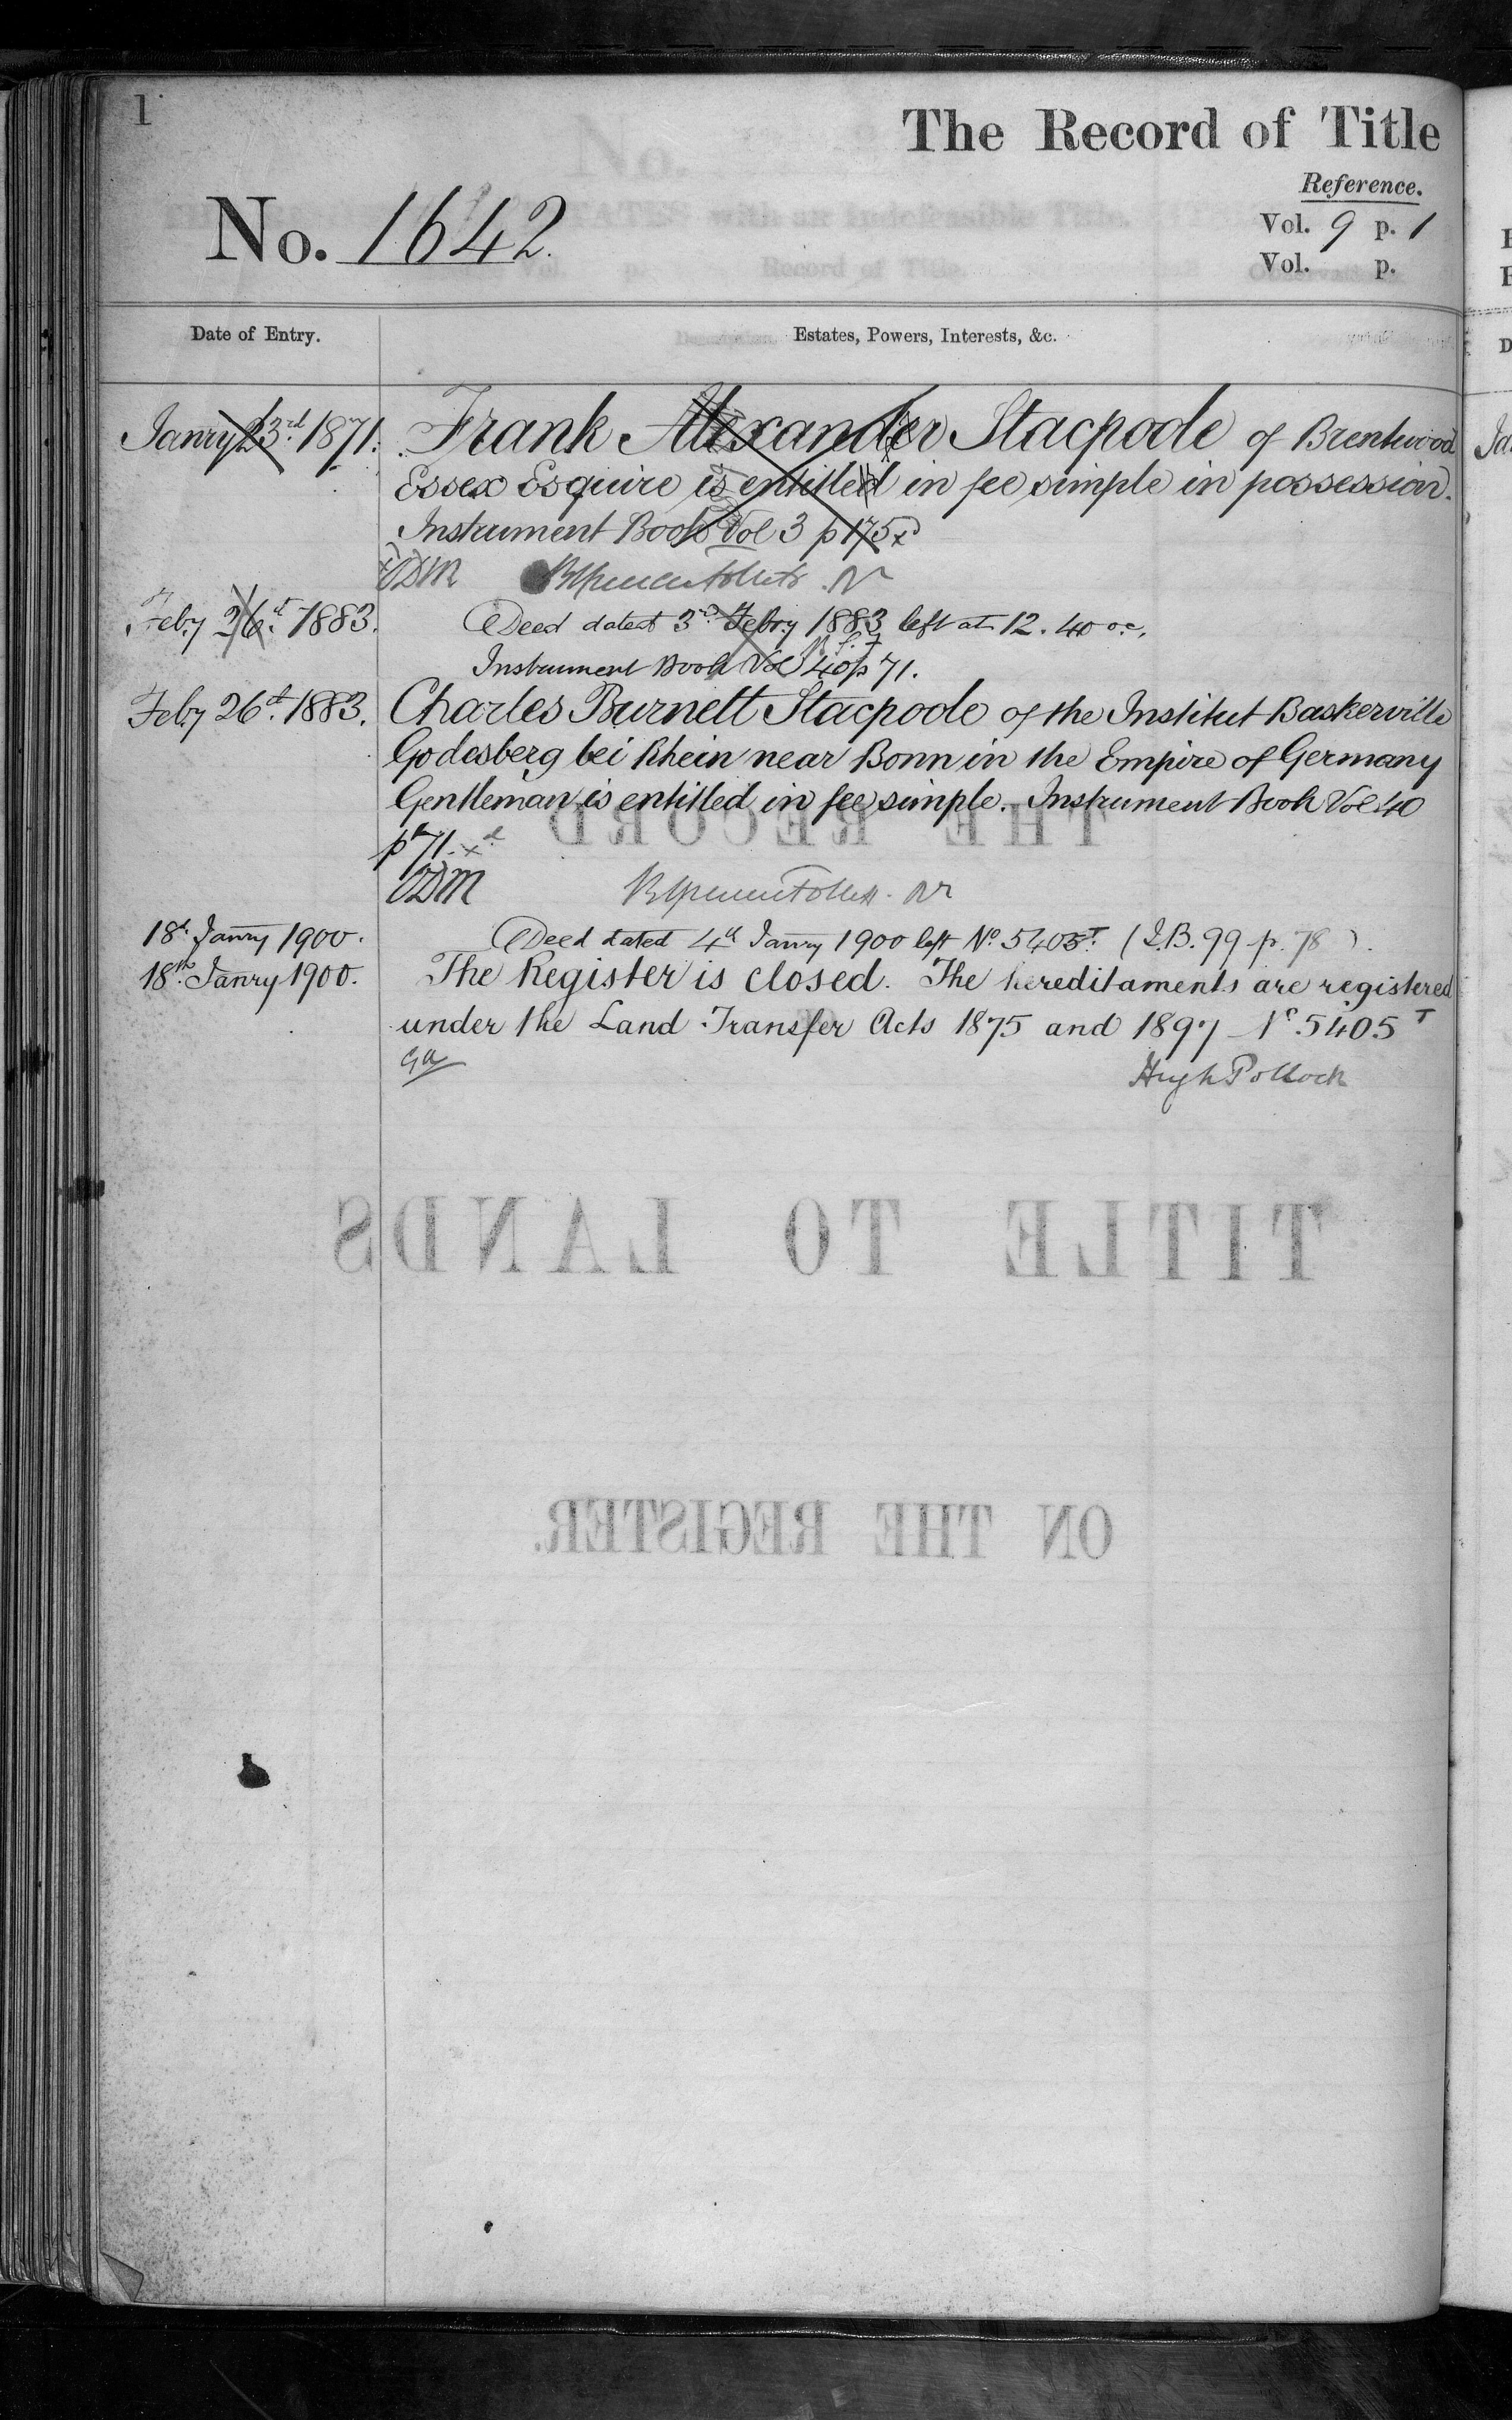 1
The Record of Title
Reference.
No. 1642.
Vol. 9 p. 1
Vol. p.
Date of Entry.
Estates, Powers, Interests, &c.
Janry 23rd 1871.
Frank Alexander Stacpoole of Brentwood
Essex Esquire is entitled in fee simple in possession.
Instrument Book Vol 3 p 175
Feby 26th 1883.
Deed dated 3rd Febry 1883 left at 12.40 o.c.
Instrument Book Vol 40 p 71.
Feby 26th 1883.
Charles Burnett Stacpoole of the Institut Baskerville
Godesberg bei Rhein near Bonn in the Empire of Germany
Gentleman is entitled in fee simple. Instrument Book Vol 40
p 71.
18th Janry 1900.
Deed dated 4th Janry 1900 left No. 5405T (I.B. 99 p. 78).
18th Janry 1900.
The Register is closed. The hereditaments are registered
under the Land Transfer Acts 1875 and 1897 No. 5405T
Hugh Pollock
THE RECORD
TITLE TO LANDS
ON THE REGISTER.